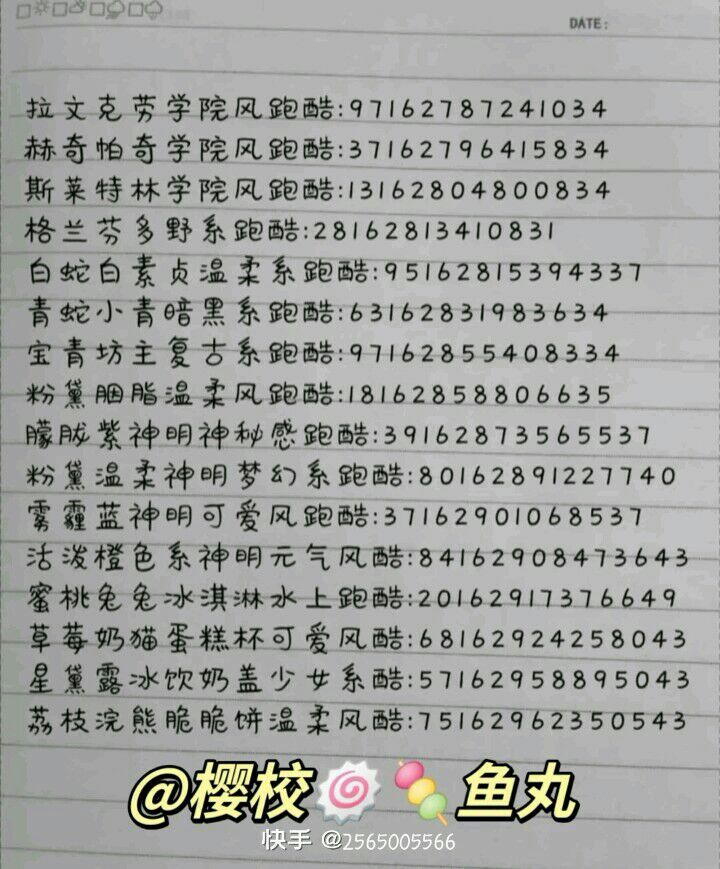 DATE:
拉文克劳学院风跑酷:97162787241034
赫奇帕奇学院风跑酷:37162796415834
斯莱特林学院风跑酷:13162804800834
格兰芬多野系跑酷:28162813410831
白蛇白素贞温柔系跑酷:95162815394337
青蛇小青暗黑系跑酷:63162831983634
宝青坊主复古系跑酷:97162855408334
粉黛胭脂温柔风跑酷:18162858806635
朦胧紫神明神秘感跑酷:39162873565537
粉黛温柔神明梦幻系跑酷:80162891227740
雾霾蓝神明可爱风跑酷:37162901068537
活泼橙色系神明元气风酷:84162908473643
蜜桃兔兔冰淇淋水上跑酷:20162917376649
草莓奶猫蛋糕杯可爱风酷:68162924258043
星黛露冰饮奶盖少女系酷:57162958895043
荔枝浣熊脆脆饼温柔风酷:75162962350543
@樱校🍥🍡鱼丸
快手 @2565005566